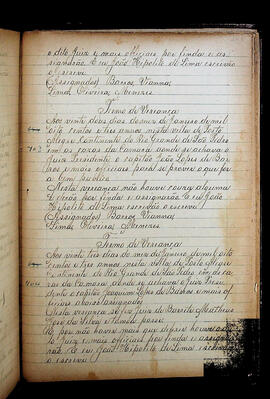 o dito Juiz e mais officiaes por finda e as-
signarão. E eu João Hipolito de Lima escrivão
o escrevi
(Assignados) Barros, Vianna,
Lima, Oliveira, Menezes.
Termo de Veriança
Aos vinte dois dias do mez de Janeiro de mil
oito centos e tres annos nesta villa de Porto
Alegre Continente do Rio Grande de São Pedro
em os casos da Camara aonde se achava o
Juiz Presidente o capitão João Lopes de Bar-
ros e mais officiaes para se prover o que for
a bem publico.
Nesta veriança não houve couza alguma
e derão por finda e assignarão. E eu João
Hipolito de Lima escrivão o escrevi
(Assignados) Barros, Vianna,
Lima, Oliveira, Menezes
Termo de Veriança
Aos vinte tres dias do mez de Janeiro de mil oito
centos e tres annos nesta villa de Porto Alegre
Continente do Rio Grande de São Pedro em os ca-
sas da Camara, onde se achava o Juiz Presi-
dente o capitão Lopes de Barros e mais of-
ficiaes abaixo assignados
Nesta veriança Juiz de Matheus
José da Silva e tomou posse.
E por não haver mais que
o Juiz e mais officiaes por finda e assigna-
rão. E eu João Hipolito de Lima escrivão
o escrevi